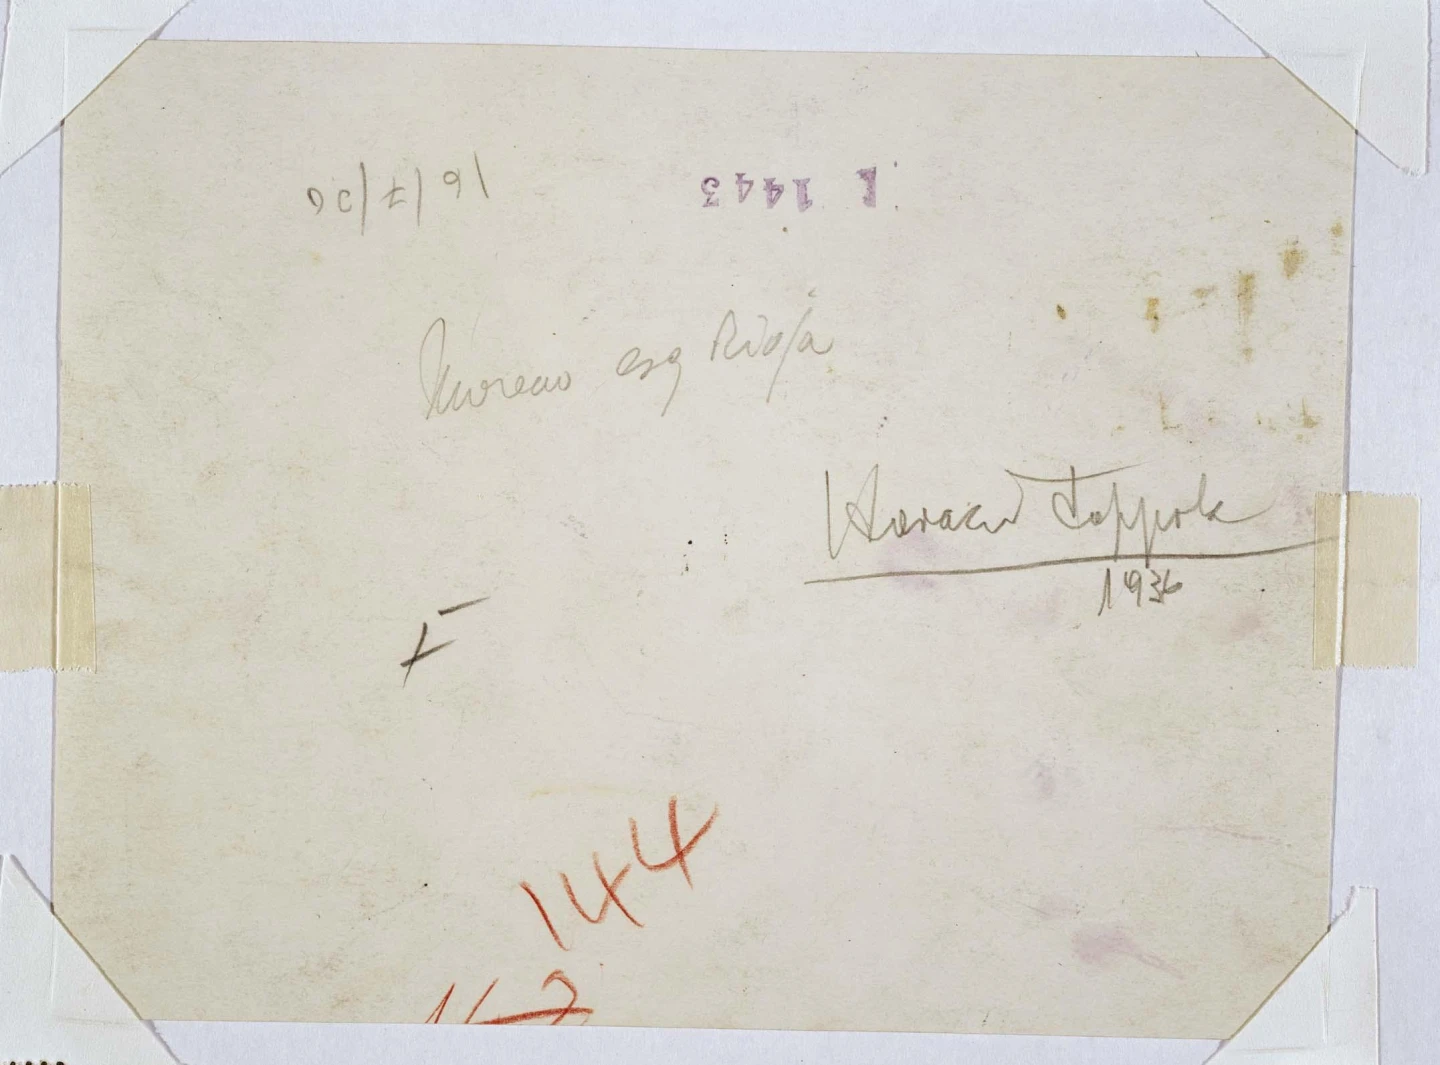 16/7/36
1443
Moreno esq Rioja
Horacio Coppola
1936
F
144